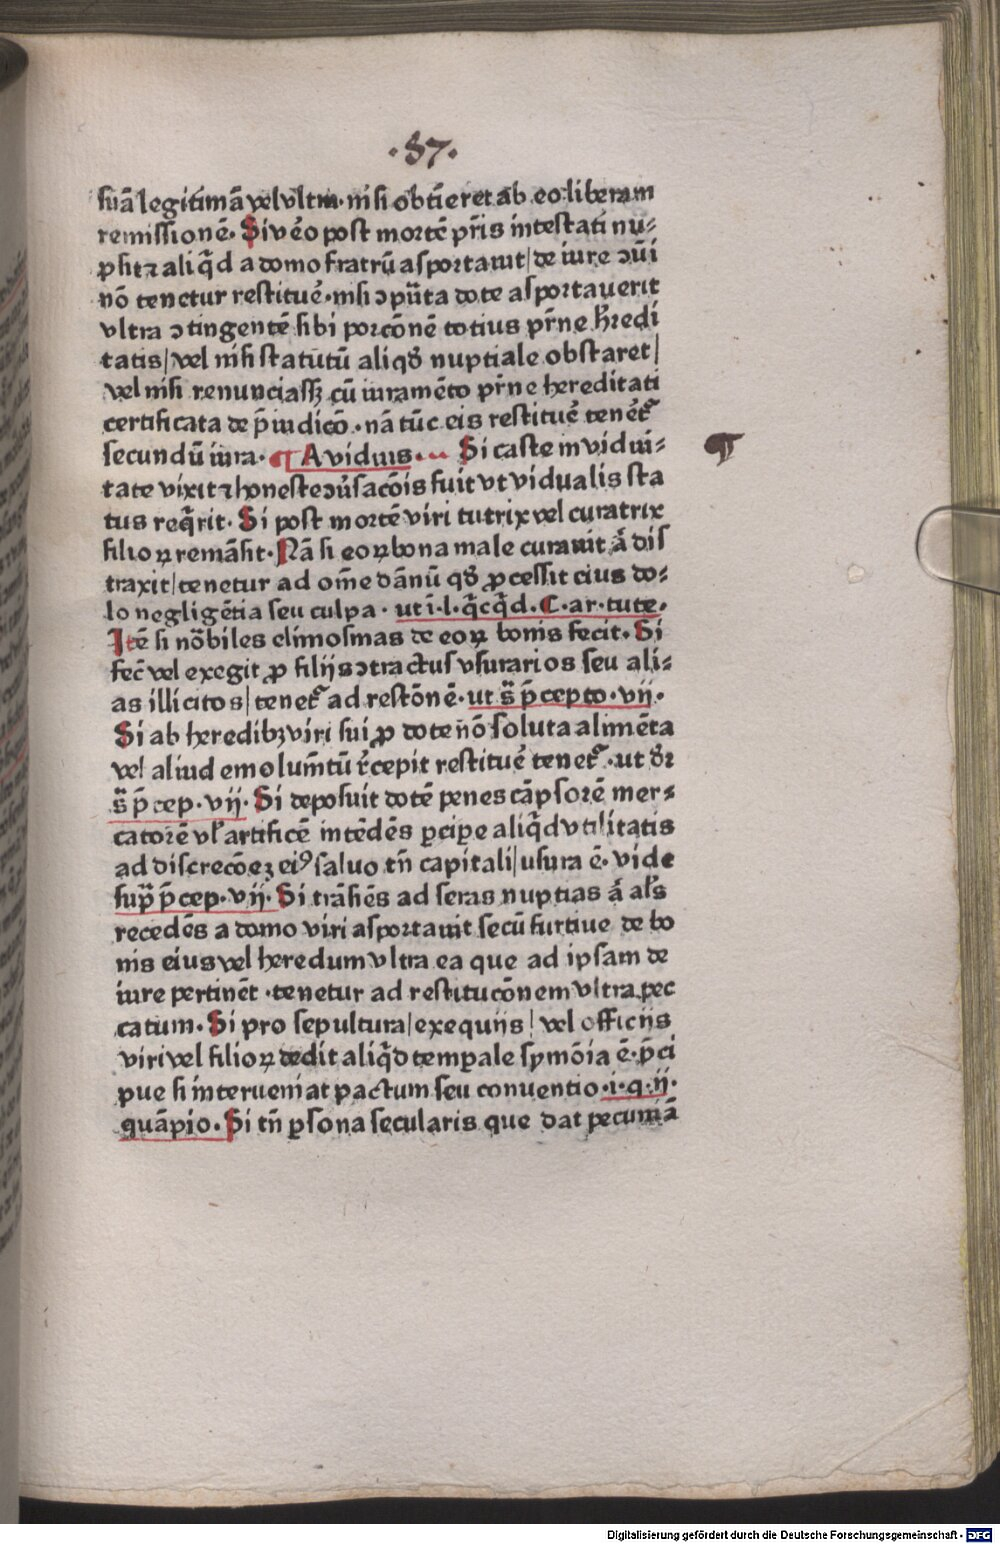 ·87·
suā legitimā vel vltra· nisi obtīeret ab eo liberam
remissionē· Si vēo post mortē pr̄is intestati nu⸗
psit ⁊ aliq̄d a domo fratrū asportauit/ de iure ↄūi
nō tenetur restituē· nisi ↄpūta dote asportauerit
vltra ↄtingentē sibi porcōnē totius pr̄ne h̄redi
tatis/ vel nisi statutū aliqd̄ nuptiale obstaret/
vel nisi renunciassꝫ cū iuramēto pr̄ne hereditati
certificata de p̄iudicō· nā tūc eis restituē tenēt᷑
secundū iura· ¶ A viduis· Si caste in vidui⸗
tate vixit ⁊ honeste ↄūsacōis fuit vt vidualis sta
tus req̄rit· Si post mortē viri tutrix vel curatrix
filioꝝ remāsit· Nā si eoꝝ bona male curauit ā dis
traxit/ tenetur ad om̄e dānū qd̄ ꝓcessit eius do⸗
lo negligētia seu culpa· ut ī·l·q̄cq̄d· C· ar· tute·
Itē si nōbiles elimosinas de eoꝝ bonis fecit· Si
fec̄ vel exegit ꝓ filijs ↄtractus vsurarios seu ali⸗
as illicitos/ tenet᷑ ad restōnē· ut s̄ p̄cepto· vij·
Si ab heredibꝫ viri sui ꝓ dote nō soluta alimēta
vel aliud emolum̄tū r̄cepit restituē tenet᷑· ut dr̄
s̄ p̄cep· vij· Si deposuit dotē penes cāpsorē mer⸗
catorē vl̄ artificē intēdēs ꝑcipe aliq̄d vtilitatis
ad discrecōeꝫ eiꝰ saluo tn̄ capitali/ usura ē· vide
sup̄ p̄cep· vij· Si trāsiēs ad seras nuptias ā al̄s
recedēs a domo viri asportauit secū furtiue de bo
nis eius vel heredum vltra ea que ad ipsam de
iure pertinēt· tenetur ad restitucōnem vltra pec
catum· Si pro sepultura/ exequijs/ vel officijs
viri vel filioꝝ dedit aliq̄d tempale symōia ē· p̄ci
pue si interueniat pactum seu conuentio· i· q· ij·
quāpio· Si tn̄ ꝑsona secularis que dat pecuniā
¶
Digitalisierung gefördert durch die Deutsche Forschungsgemeinschaft · DFG